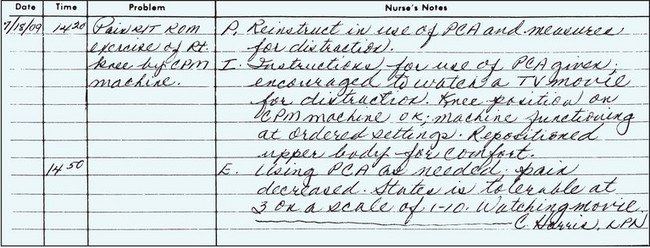 Date Time Problem Nurse's Notes
7/18/09 1420 Pain R/T ROM P. Reinstruct in use of PCA and measures
exercise of Rt. for distraction.
knee by CPM I. Instructions for use of PCA given;
machine. encouraged to watch a TV movie
for distraction. Knee position on
CPM machine OK; machine functioning
at ordered settings. Repositioned
upper body for comfort.
1450 E. Using PCA as needed; pain
decreased. States is tolerable at
3 on a scale of 1-10. Watching movie.
C. Harris, LPN